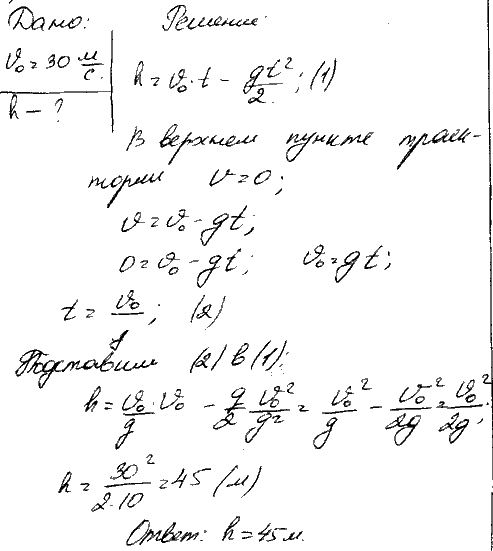 Дано: Решение:
v₀ = 30 м/с.
h = v₀·t − gt²/2; (1)
h − ?
В верхнем пункте траек-
тории v = 0;
v = v₀ − gt;
0 = v₀ − gt; v₀ = gt;
t = v₀/g; (2)
Подставим (2) в (1):
h = v₀/g · v₀ − g/2 · v₀²/g² = v₀²/g − v₀²/2g = v₀²/2g;
h = 30²/2·10 = 45 (м)
Ответ: h = 45 м.